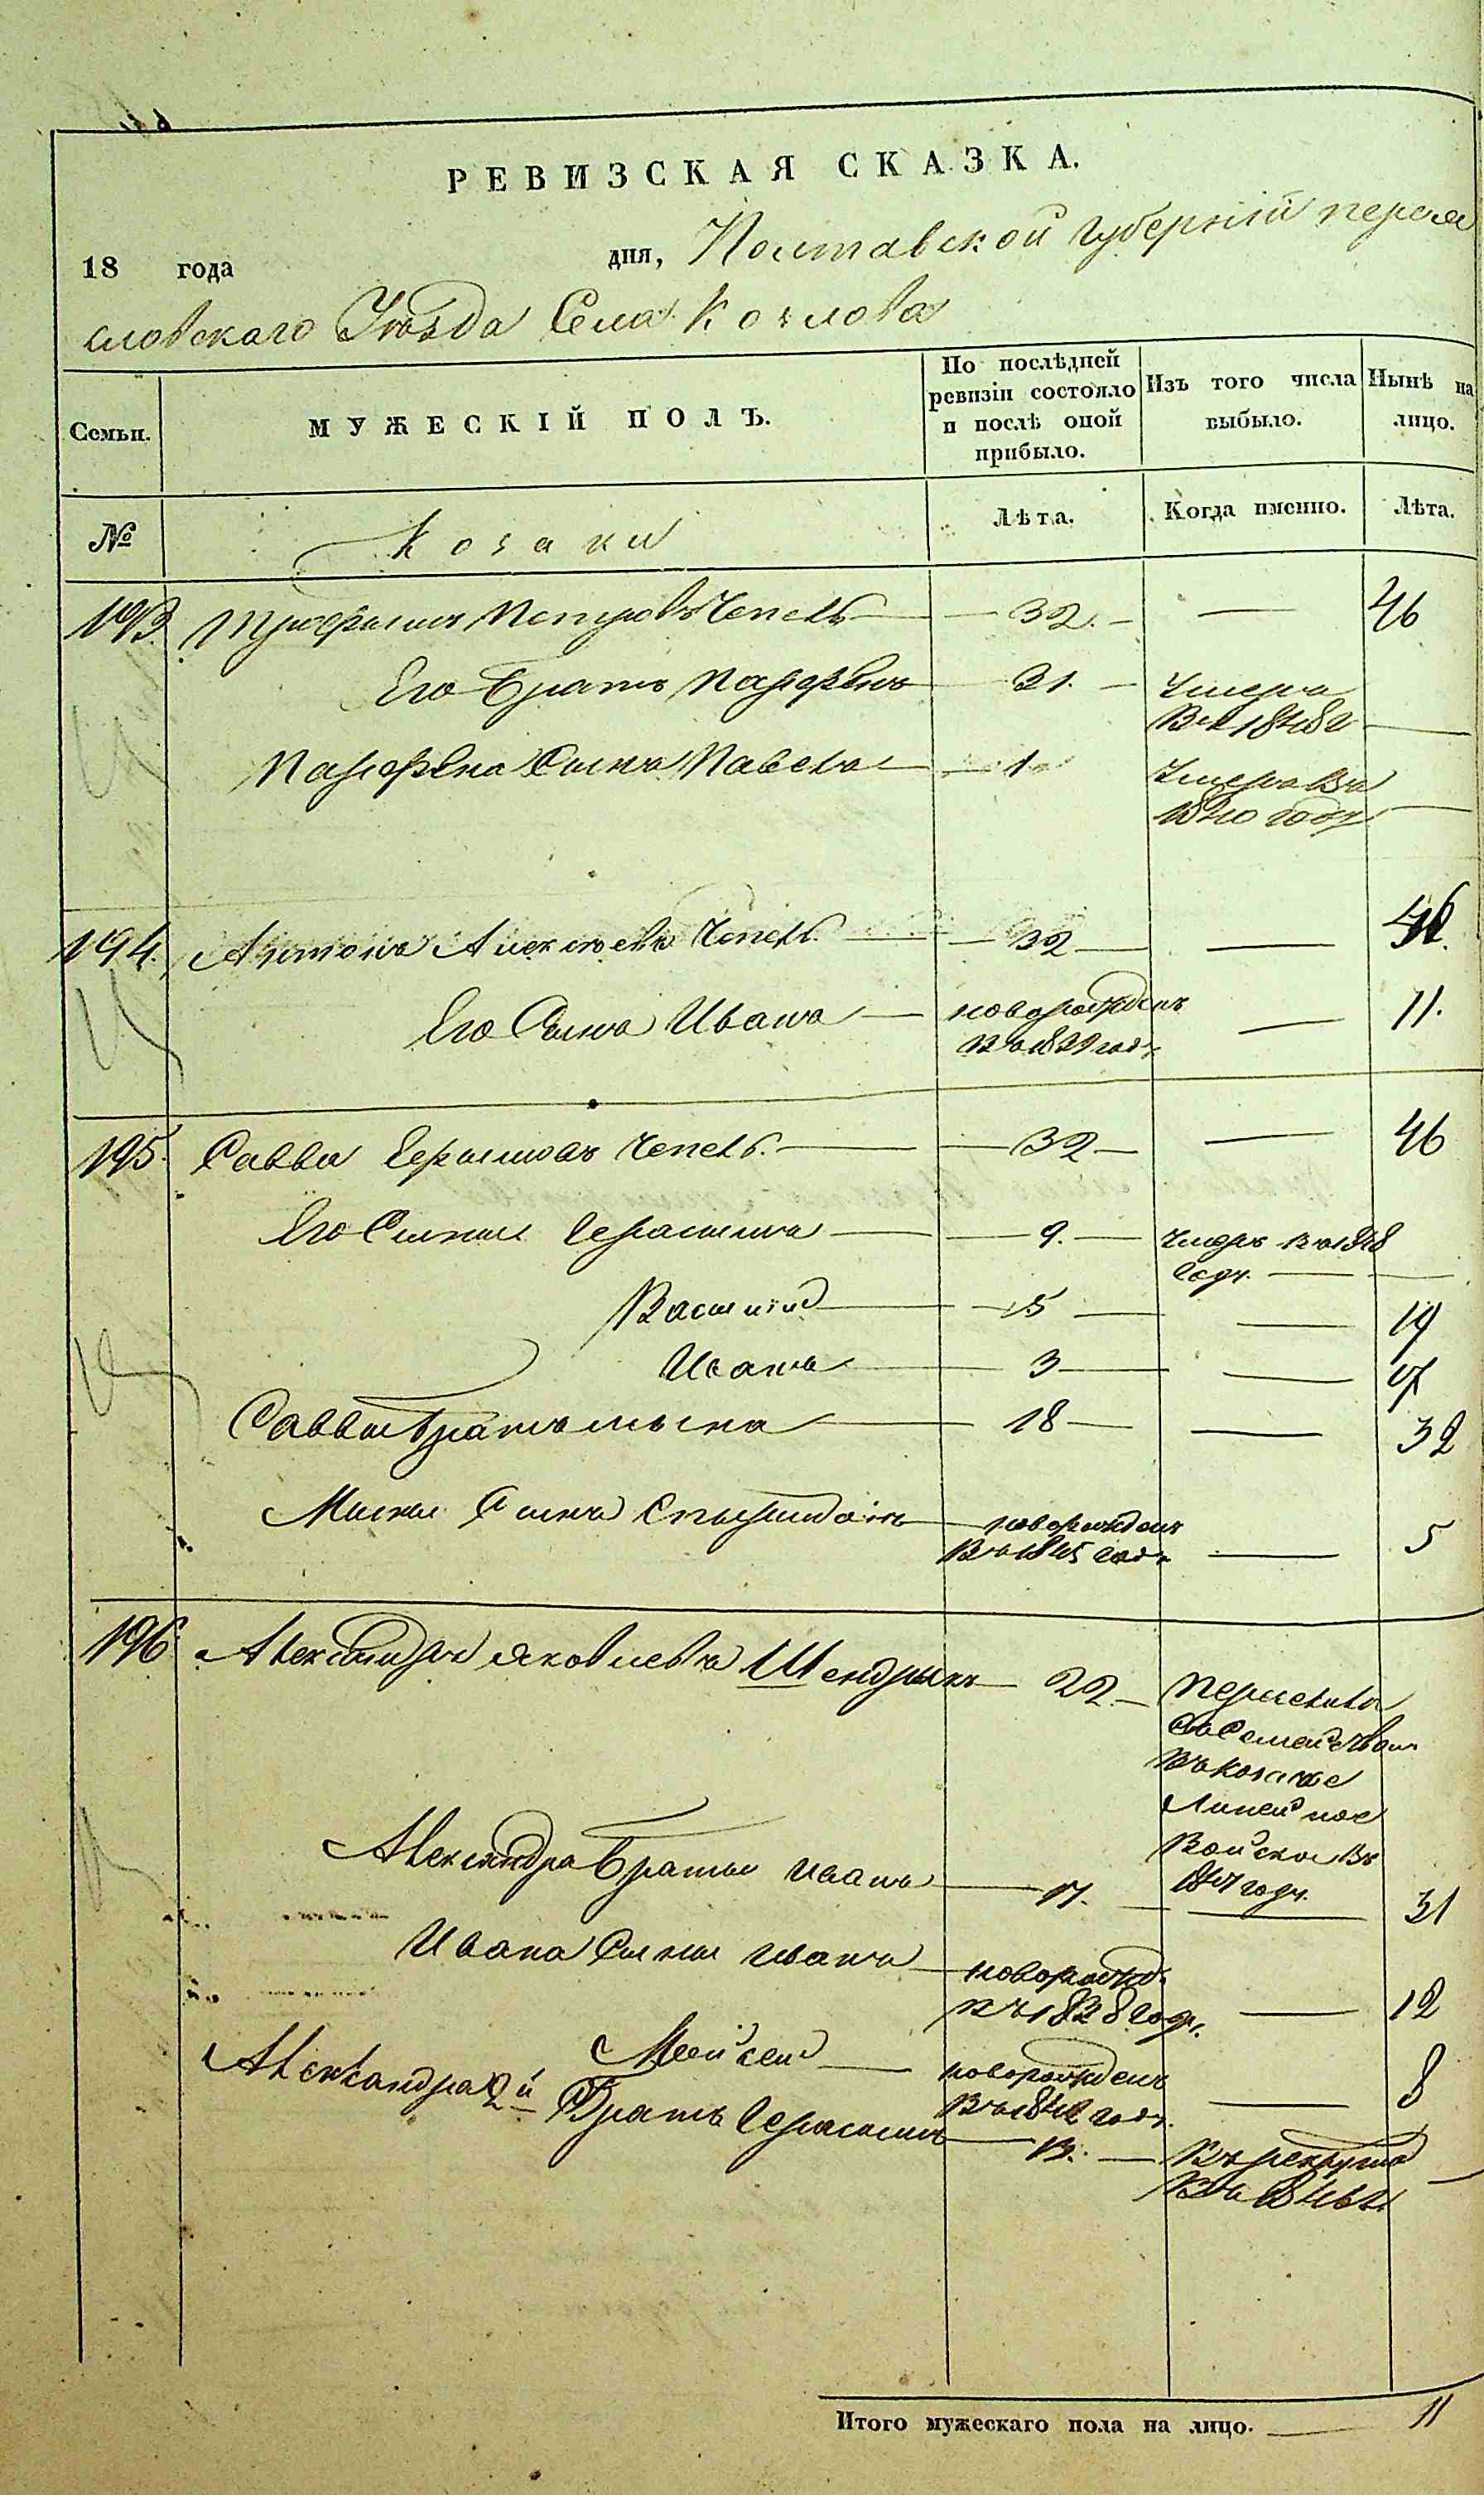 РЕВИЗСКАЯ СКАЗКА.
18 года дня, Полтавской губерніи перея
словскаго Уѣзда Села Козлова
Семьи.
МУЖЕСКІЙ ПОЛЪ.
По послѣдней ревизіи состояло и послѣ оной прибыло.
Изъ того числа выбыло.
Нынѣ на лицо.
№
Козаки
Лѣта.
Когда именно.
Лѣта.
193. Трофимъ Петровъ Чепель 32. 46
Его братъ Парфенъ 31. Умеръ
въ 1848 г
Парфена Сынъ Павелъ 1 Умеръ въ
1840 году
194. Антонъ Алексѣевъ Чепель 32 46.
Его Сынъ Иванъ новорожденъ 11.
въ 1839 году
195. Савва Герасимовъ Чепель. 32 46
Его Сыны Герасимъ 9. Умеръ въ 1848
году.
Василій 5 19
Иванъ 3 17
Саввы братъ 18 32
Сынъ Спиридонъ новорожденъ 5
въ 1845 году
196. Александръ Яковлевъ Шендрикъ 22. Переселенъ
съ Семействомъ
въ козачье
Линейное
Войско въ
году.
Александра братья Иванъ 17. 31
Ивана Сыны Иванъ новорожд. 12
въ 1838 году.
Мойсей новорожденъ 8
въ 1842 году.
Александра 2й Братъ Герасимъ 13. Въ рекруты
въ
Итого мужескаго пола на лицо. 11